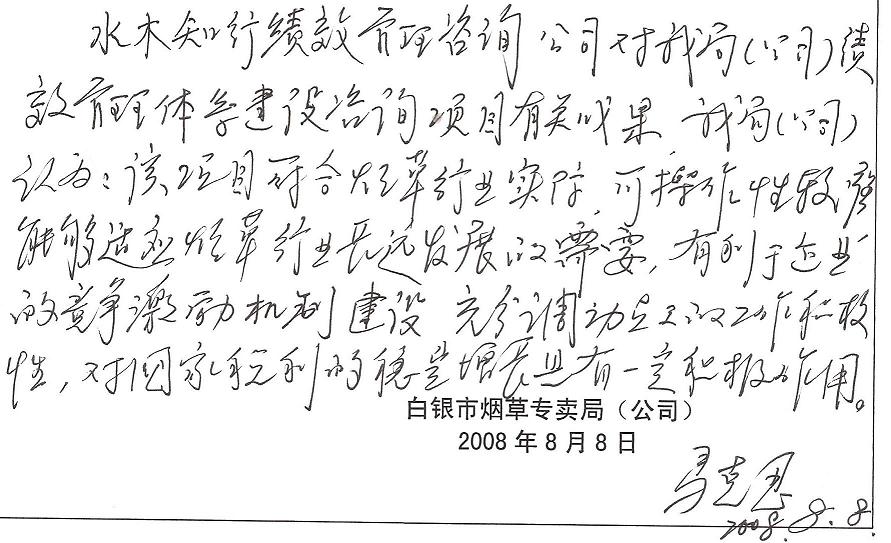 水木知行绩效管理咨询公司对我局(公司)绩
效管理体系建设咨询项目有关成果,我局(公司)
认为:该项目符合烟草行业实际,可操作性较强
能够适应烟草行业长远发展的需要,有利于企业
的竞争激励机制建设,充分调动员工的工作积极
性,对国家税利的稳定增长具有一定积极作用。
白银市烟草专卖局(公司)
2008年8月8日
马克恩
2008.8.8.